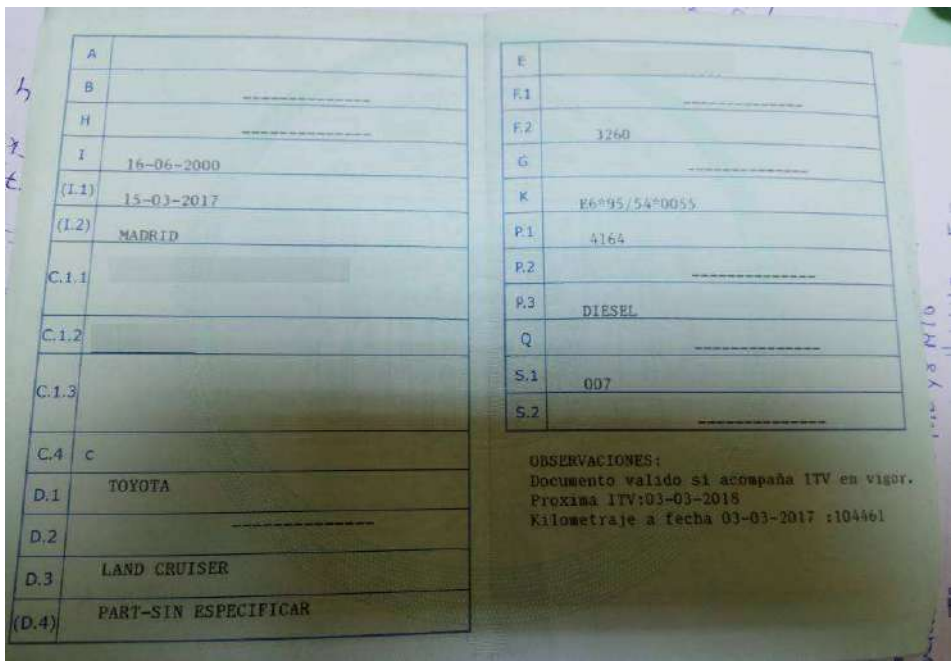 A
B --------------
H --------------
I 16-06-2000
(I.1) 15-03-2017
(I.2) MADRID
C.1.1
C.1.2
C.1.3
C.4 c
D.1 TOYOTA
D.2 ---------------
D.3 LAND CRUISER
(D.4) PART-SIN ESPECIFICAR
E
F.1 --------------
F.2 3260
G --------------
K E6*95/54*0055
P.1 4164
P.2 --------------
P.3 DIESEL
Q --------------
S.1 007
S.2 --------------
OBSERVACIONES:
Documento valido si acompaña ITV en vigor.
Proxima ITV:03-03-2018
Kilometraje a fecha 03-03-2017 :104461